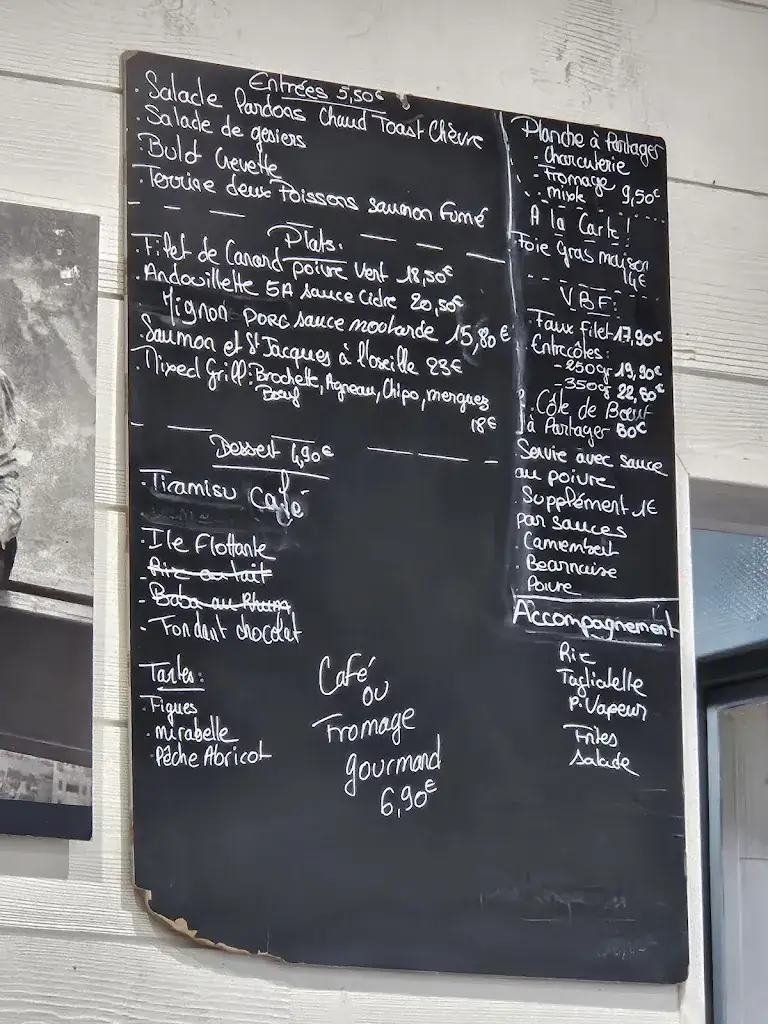 Entrées 5,50€
· Salade Lardons Chaud Toast Chèvre
· Salade de gésiers
· Bulot Crevette
· Terrine deux Poissons saumon Fumé
Plats.
· Filet de Canard poivre Vert 18,50€
· Andouillette 5A sauce Cidre 20,50€
Mignon Porc sauce moutarde 15,80€
Saumon et St Jacques à l'oseille 23€
· Mixed Grill: Brochette, Agneau, Chipo, merguez
Boeuf
18€
Dessert 4,90€
· Tiramisu Café
· Ile Flottante
- Riz au lait
- Baba au Rhum
- Fondant chocolat
Tartes:
· Figues
· mirabelle
· Pêche Abricot
Café
ou
Fromage
gourmand
6,90€
Planche à Partager
- Charcuterie
- Fromage
· mixte 9,50€
A la Carte!
Foie Gras maison
14€
VBF:
· Faux filet 17,90€
· Entrecôtes:
- 250gr 19,90€
- 350gr 22,80€
· Côte de Boeuf
à Partager 60€
Servie avec sauce
au poivre
· Supplément 1€
par sauces
· Camembert
· Bearnaise
· Poivre
Accompagnement
Riz
Tagliatelle
P. Vapeur
Frites
Salade